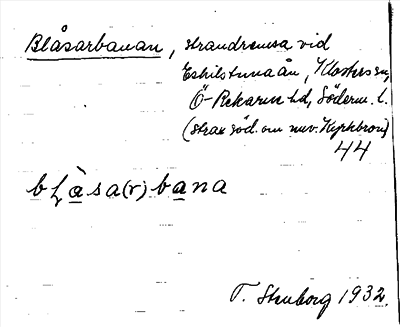 Blåsarbanan, strandremsa vid
Eskilstunaån, Klosters sn,
Ö-Rekarne hd, Söderm. l.
(strax söd. om nuv. Kyrkbron)
44
bḷàsa(r)bana
T. Stenborg 1932.